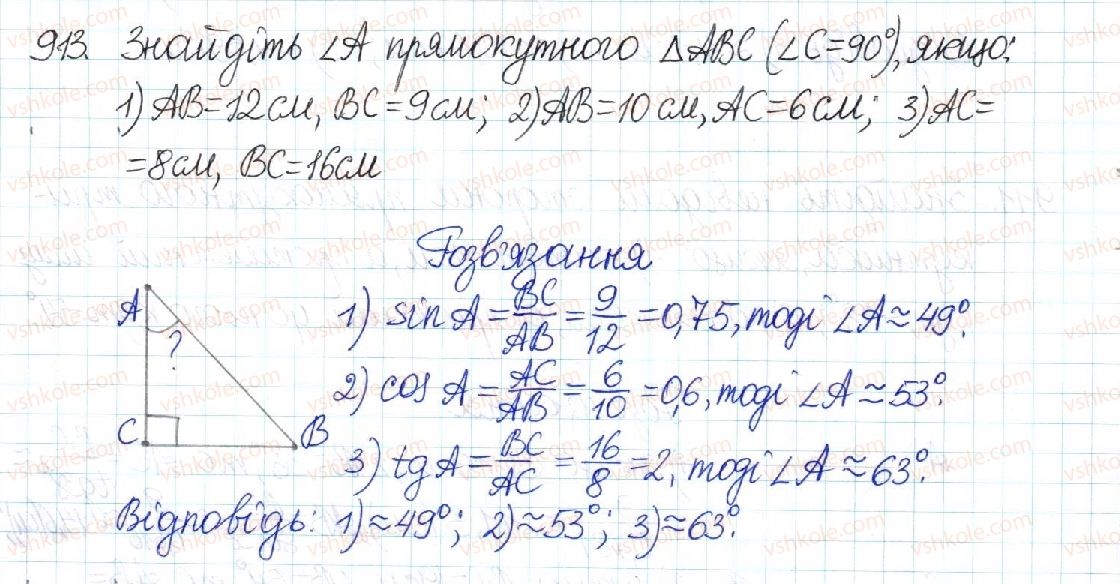 913. Знайдіть ∠A прямокутного △ABC (∠C=90°), якщо:
1) AB=12см, BC=9см; 2) AB=10см, AC=6см; 3) AC=
=8см, BC=16см
Розв'язання
A
?
C
B
1) sin A = BC/AB = 9/12 = 0,75, тоді ∠A ≈ 49°.
2) cos A = AC/AB = 6/10 = 0,6, тоді ∠A ≈ 53°.
3) tg A = BC/AC = 16/8 = 2, тоді ∠A ≈ 63°.
Відповідь: 1) ≈ 49°; 2) ≈ 53°; 3) ≈ 63°.
vshkole.com